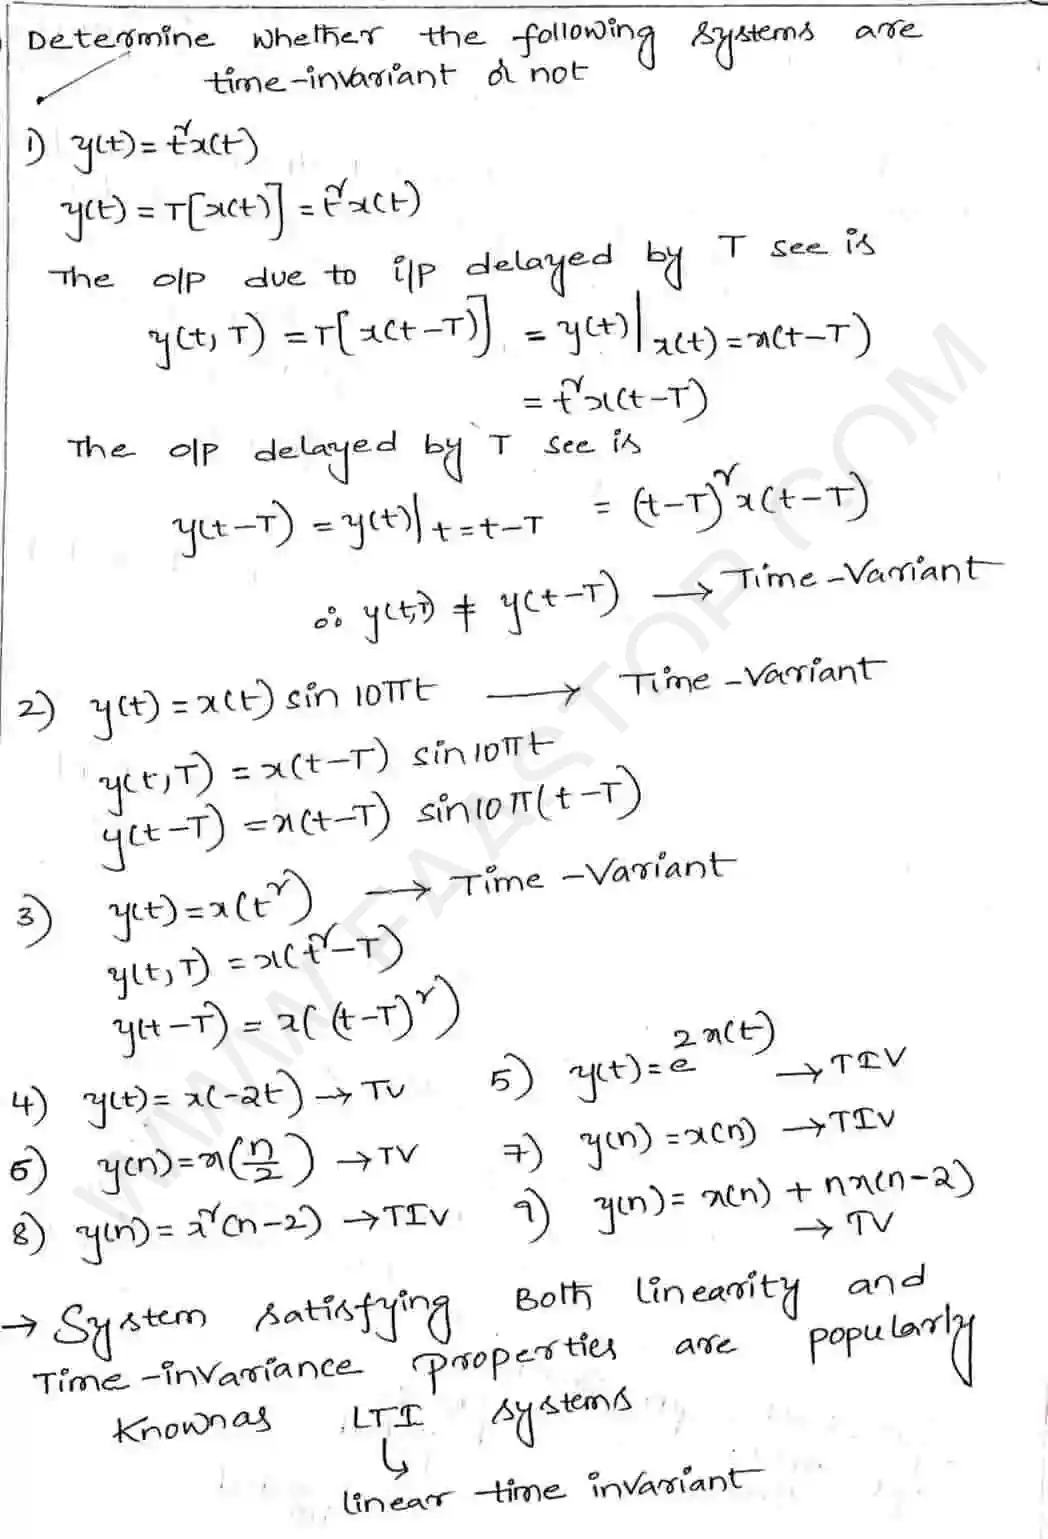 Determine whether the following systems are
time-invariant or not
1) y(t) = t²x(t)
y(t) = T[x(t)] = t²x(t)
The o/p due to i/p delayed by T see is
y(t, T) = T[x(t-T)] = y(t)|x(t) = x(t-T)
= t²x(t-T)
The o/p delayed by T see is
y(t-T) = y(t)|t=t-T = (t-T)²x(t-T)
∴ y(t,T) ≠ y(t-T) → Time-Variant
2) y(t) = x(t) sin 10πt → Time-Variant
y(t,T) = x(t-T) sin10πt
y(t-T) = x(t-T) sin10π(t-T)
3) y(t) = x(t²) → Time-Variant
y(t,T) = x(t²-T)
y(t-T) = x((t-T)²)
4) y(t) = x(-2t) → TV 5) y(t) = e^{2x(t)} → TIV
6) y(n) = x(n/2) → TV 7) y(n) = x(n) → TIV
8) y(n) = x²(n-2) → TIV 9) y(n) = x(n) + nx(n-2)
→ TV
→ System satisfying Both linearity and
Time-invariance properties are popularly
Known as LTI systems
↳ linear time invariant
WWW.FAASTOP.COM